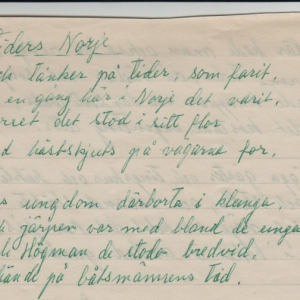 iders Norje
tänker på tider, som farit,
en gång här i Norje det varit,
det stod i sitt flor
hästskjuts på vägarna for.
ungdom därborta i klunga,
järpen var med bland de unga
Högman de stodo bredvid,
på båtsmännens tid.